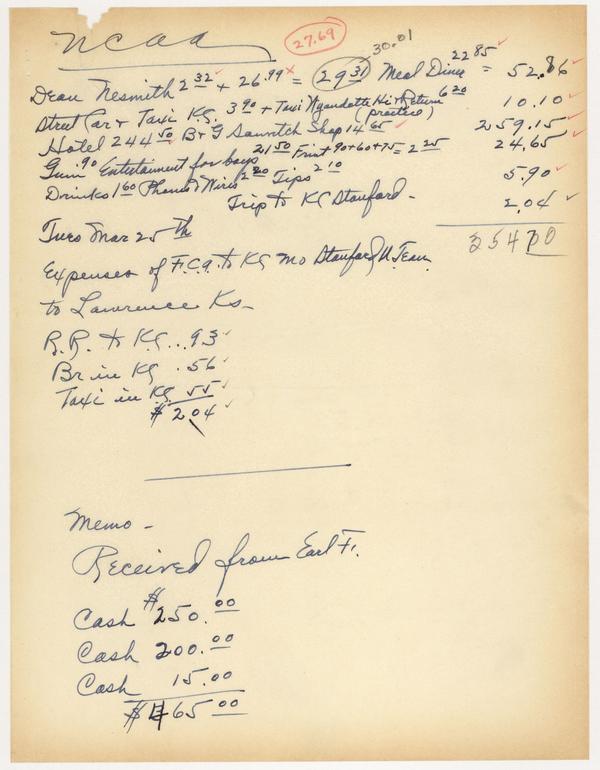 NCAA 27.69 30.01
Dean Nesmith 2 32 + 26.99 x = 29 31 Meal Diner 22 85 = 52.86
Street Car + Taxi K.C. 3 90 + Taxi Wyandotte Hi + Return 6 20 (practice) 10.10
Hotel 244 50 B & G Sanwitch Shop 14 65 259.15
Gum .90 Entertainment for boys 21 50 Fruit 90+60+75= 2 25 24.65
Drinks 1 60 Phones & Wires 2 20 Tips 2 10 5.90
Trip to KC Stanford - 2.04
35470
Tues Mar 25 th
Expenses of F.C.A. to KC Mo Stanford U. Team
to Lawrence Ks -
R.R. to KC .. 93
Br in KC .56
Taxi in KC 55
$ 2.04
Memo -
Received from Earl F.
Cash $250.00
Cash 200.00
Cash 15.00
$465.00